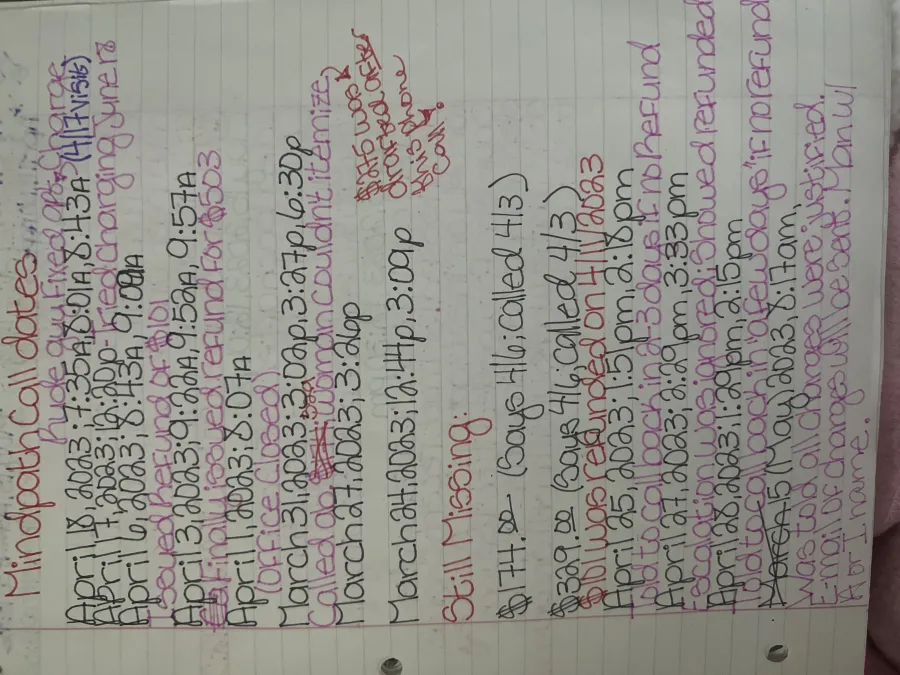 Mindpath Call dates
Rude guy fixed $126 charge
April 18, 2023; 7:35A, 8:01A, 8:43A - (4/17 visits)
April 17, 2023; 12:20p - Fixed charging June 18
April 6, 2023, 8:43A, 9:08A
Issued refund of $101
April 3, 2023; 9:22A, 9:52A, 9:57A
Finally issued refund for $503
April 1, 2023; 8:07A
(office closed)
March 31, 2023; 3:02p, 3:27p, 6:30p
Called again: woman couldn't itemize)
March 27, 2023; 3:26p
$275 was drafted after this phone call.
March 24, 2023; 12:44p, 3:09p
Still Missing:
$174.00 (Says 4/6; called 4/3)
$329.00 (Says 4/6; called 4/3)
$101 was refunded on 4/11/2023
April 25, 2023, 1:51pm, 2:18pm
told to call back in 2-3 days if no Refund
April 27, 2023; 2:29pm, 3:33pm
Escalation was ignored. Showed refunded
April 28, 2023; 1:29pm, 2:15pm
told to call back in "a few days" if no refund
March 15 (May) 2023, 8:17am,
Was told all charges were justified.
Email of charges will be sent. Man w/
Arn name.